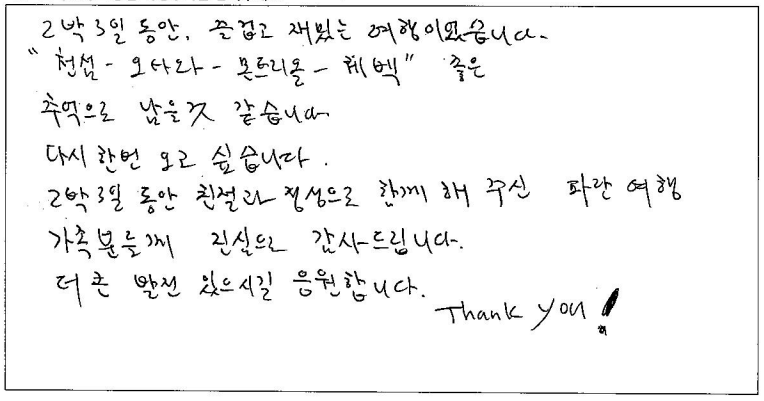 2박 3일 동안, 즐겁고 재밌는 여행이였습니다.
"천섬 - 오타와 - 몬트리올 - 퀘벡" 좋은
추억으로 남을것 같습니다
다시 한번 오고 싶습니다.
2박 3일 동안 친절과 정성으로 함께 해 주신 파란 여행
가족분들께 진심으로 감사드립니다.
더 큰 발전 있으시길 응원합니다.
Thank you!